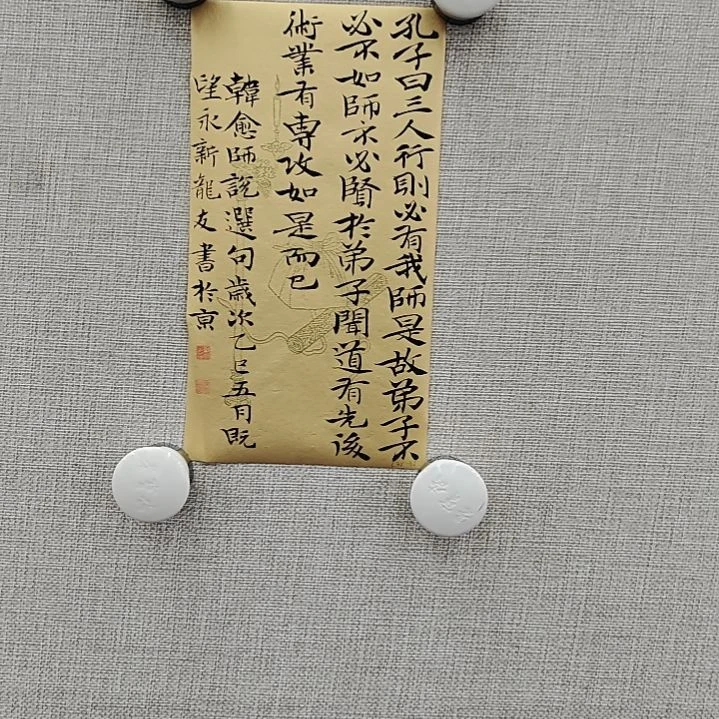 孔子曰三人行則必有我師是故弟子不
必不如師不必賢於弟子聞道有先後
術業有專攻如是而已
韓愈師說選句歲次乙巳五月既
望永新龍友書於京